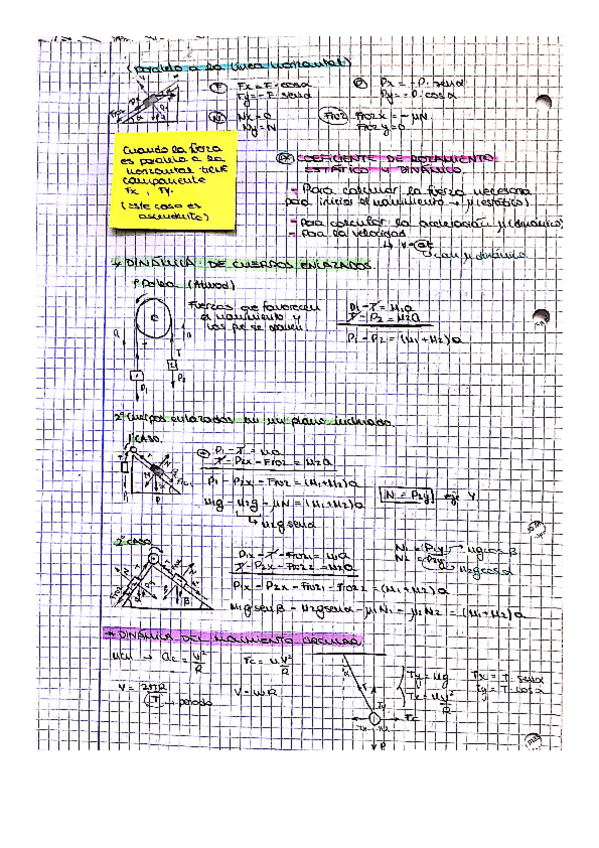 (paralelo a la línea horizontal)
F Fx = F·cosα
Fy = -F·senα
P Px = -P·senα
Py = -P·cosα
N Nx = 0
Ny = N
Froz Froz x = -μN
Froz y = 0
Cuando la fuerza
es paralela a la
horizontal tiene
componente
Fx, Fy.
(este caso es
ascendente)
COEFICIENTE DE ROZAMIENTO
ESTÁTICO Y DINÁMICO
- Para calcular la fuerza necesaria
para iniciar el movimiento → μ (estático)
- Para calcular la aceleración μ (dinámico)
- Para la velocidad
↳ v = at
con μ dinámico
* DINÁMICA DE CUERPOS ENLAZADOS.
1º Polea (Atwood)
Fuerzas que favorecen
el movimiento y
P1 - T = M1a
T - P2 = M2a
P1 - P2 = (M1 + M2)a
2º Cuerpos enlazados en un plano inclinado.
1º CASO.
P1 - T = M1a
T - P2x - Froz = M2a
P1 - P2x - Froz = (M1+M2)a
M1g - M2g - μN = (M1+M2)a
↳ M2g senα
N = P2y eje Y
2º CASO
P1x - T - Froz1 = M1a
T - P2x - Froz2 = M2a
P1x - P2x - Froz1 - Froz2 = (M1+M2)a
M1g senβ - M2g senα - μ1N1 - μ2N2 = (M1+M2)a
N1 = P1y → M1g cosβ
N2 = P2y
↳ M2g cosα
* DINÁMICA DEL MOVIMIENTO CIRCULAR.
MCU → ac = v²/R
Fc = M v²/R
v = 2πR/T → periodo
v = ωR
Ty = Mg
Tx = M v²/R
Tx = T·senα
Ty = T·cosα